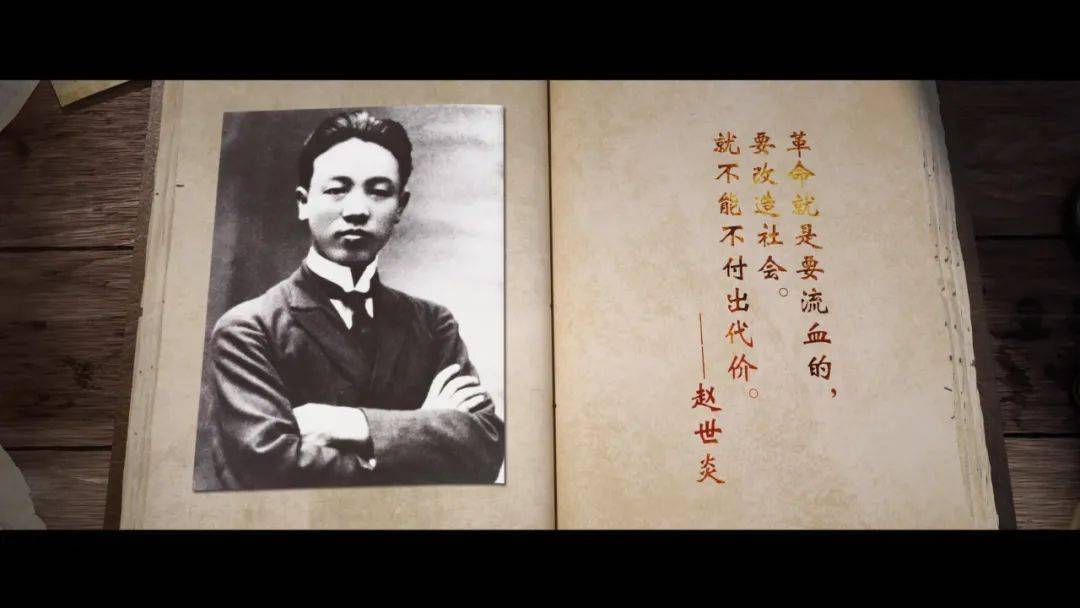 革命就是要流血的，
要改造社会。
就不能不付出代价。
——赵世炎